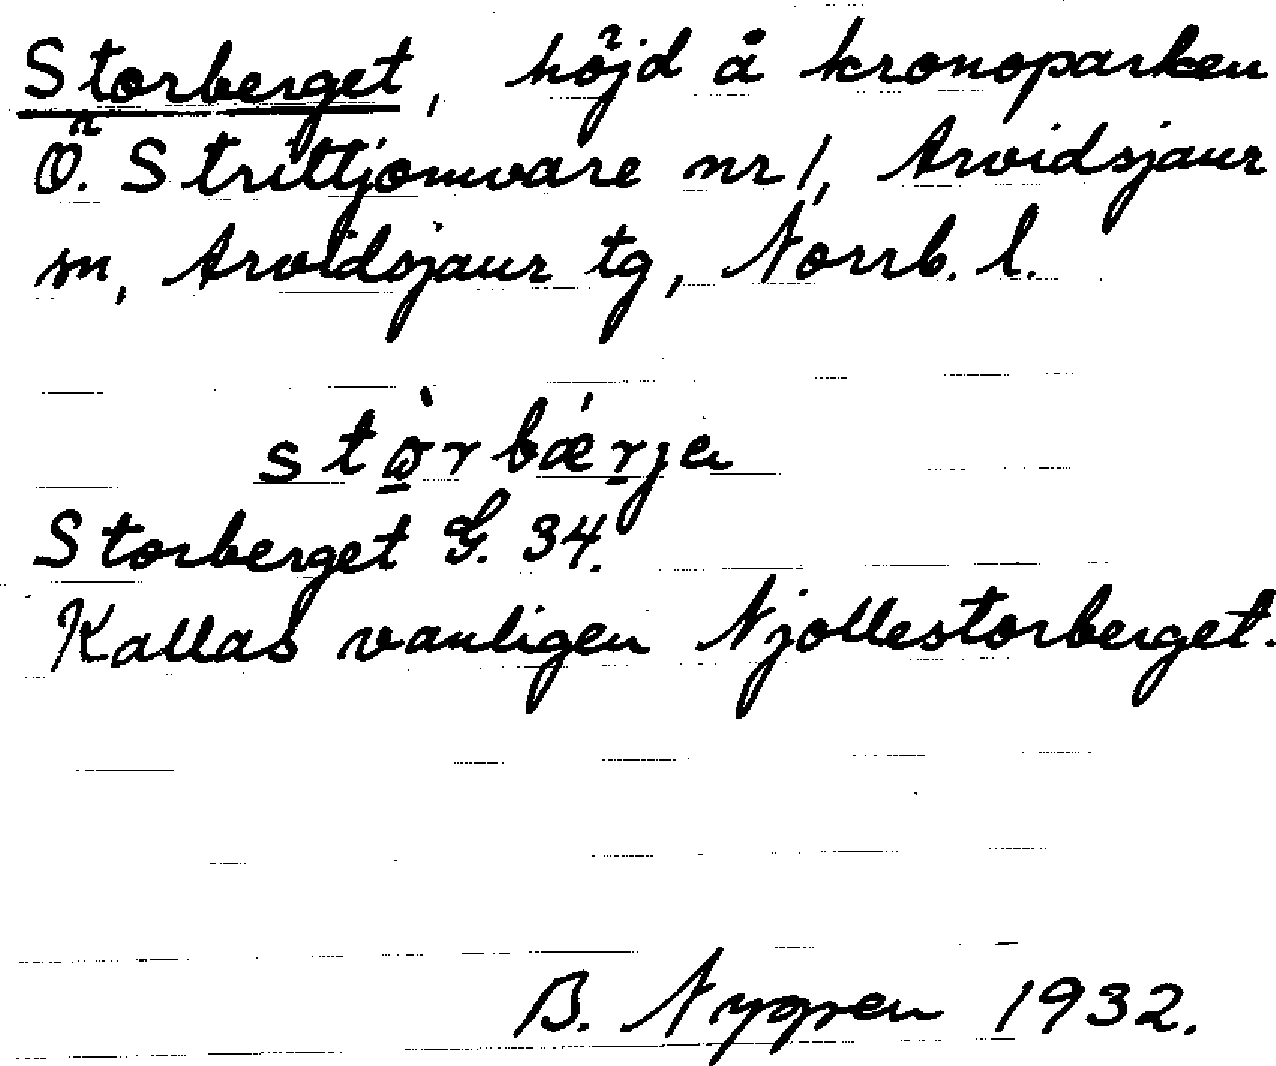 Storberget, höjd å kronoparken
Ö. Strittjomvare nr 1, Arvidsjaur
sn, Arvidsjaur tg, Norrb. l.
stòrbǽrja
Storberget G. 34.
Kallas vanligen Njollestorberget.
B. Nygren 1932.